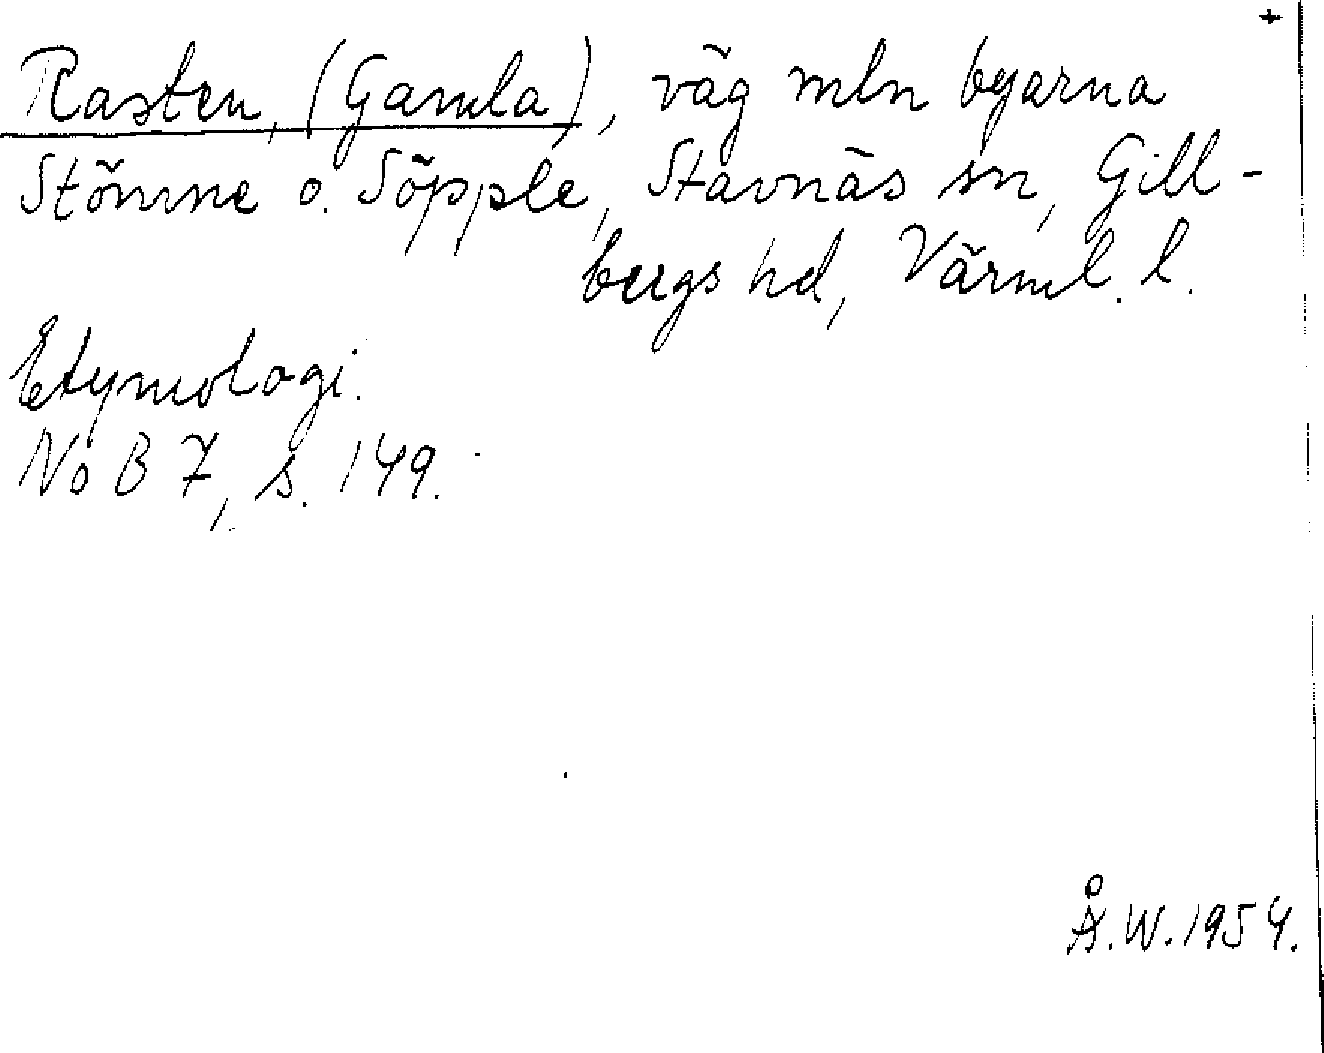 +
Rasten, (Gamla), väg mln byarna
Stömne o. Söpple, Stavnäs sn, Gill-
bergs hd, Värml. l.
Etymologi.
NoB 7, s. 149.
Å.W.1954.